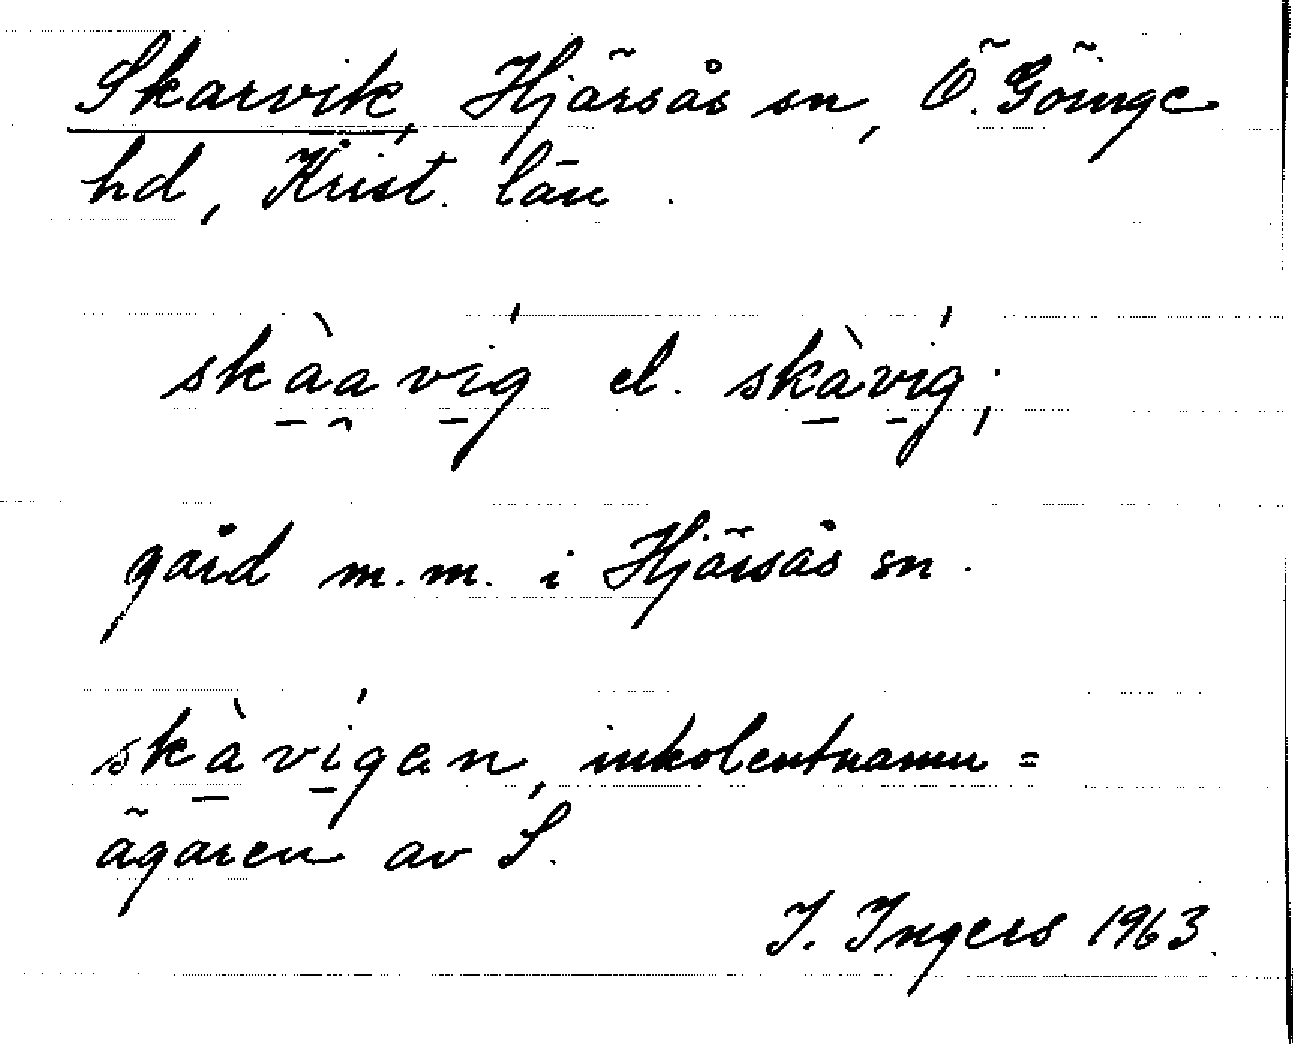 Skarvik, Hjärsås sn, Ö. Göinge
hd, Krist. län.
skàa̯víg el. skàvíg;
gård m.m. i Hjärsås sn.
skàvígan, inkolentnamn =
ägaren av S.
I. Ingers 1963.